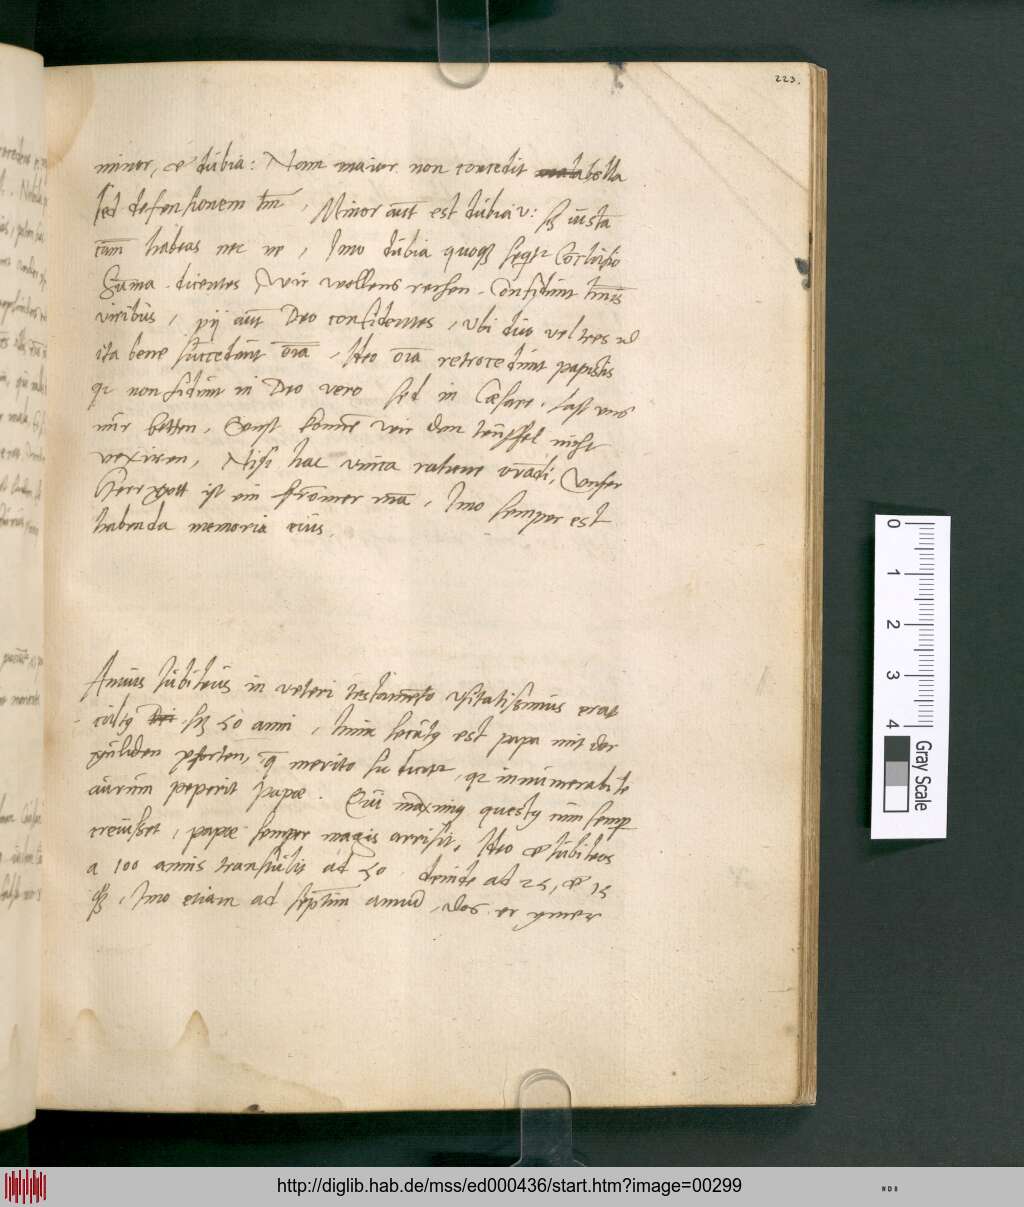 223.
minor, et dubia: Nam maior non concedit bella
sed defensionem tm̄, Minor aūt est dubia v: iusta
cām habeas nec ne, Imo dubia quoque seqr Conclusio
Suma. dicentes Wir wollens rechen. Confidunt
viribus, pij aūt Deo confidentes, vbi duo vel tres
ita bene succedunt oīa, Ideo oīa retrocedunt papistis
qz non fidunt in Deo vero sed in Cæsare. Last vns
nur betten, Sonst konnen wir den teuffel nicht
vexiren, Nisi hac vnica ratione orādi, Vnser
Herr gott ist ein fromer mā, Imo semper est
habenda memoria eius.
Annus Iubileus in veteri testamento vsitatissimus erat
50 anni, hunc secutus est papa mit der
gulden pforten, merito sic dicitr, qz innumerabile
aurum peperit papæ. Cui maximus questus cum semp
creuisset, papæ semper magis arrisit, Ideo et Iubileos
a 100 annis transtulit ad 50. deinde ad 25, et 15
Imo etiam ad septimum annum, Das er ymer
0
1
2
3
4
Gray Scale
http://diglib.hab.de/mss/ed000436/start.htm?image=00299